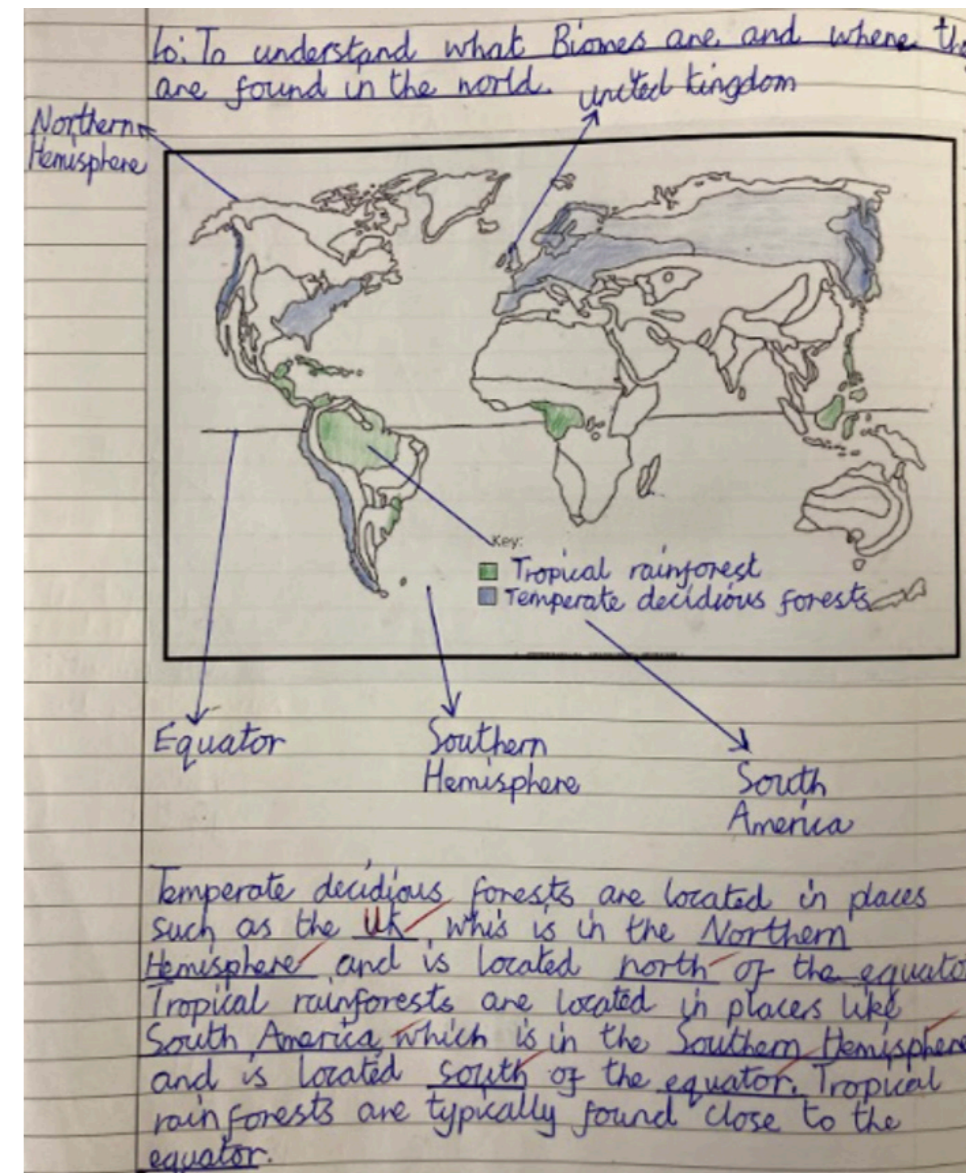 Lo: To understand what Biomes are and where the
are found in the world.
United kingdom
Northern
Hemisphere
Key:
Tropical rainforest
Temperate decidious forests
Equator
Southern
Hemisphere
South
America
Temperate decidious forests are located in places
such as the Uk whis is in the Northern
Hemisphere and is located north of the equato
Tropical rainforests are located in places like
South America which is in the Southern Hemisphere
and is located south of the equator. Tropical
rainforests are typically found close to the
equator.